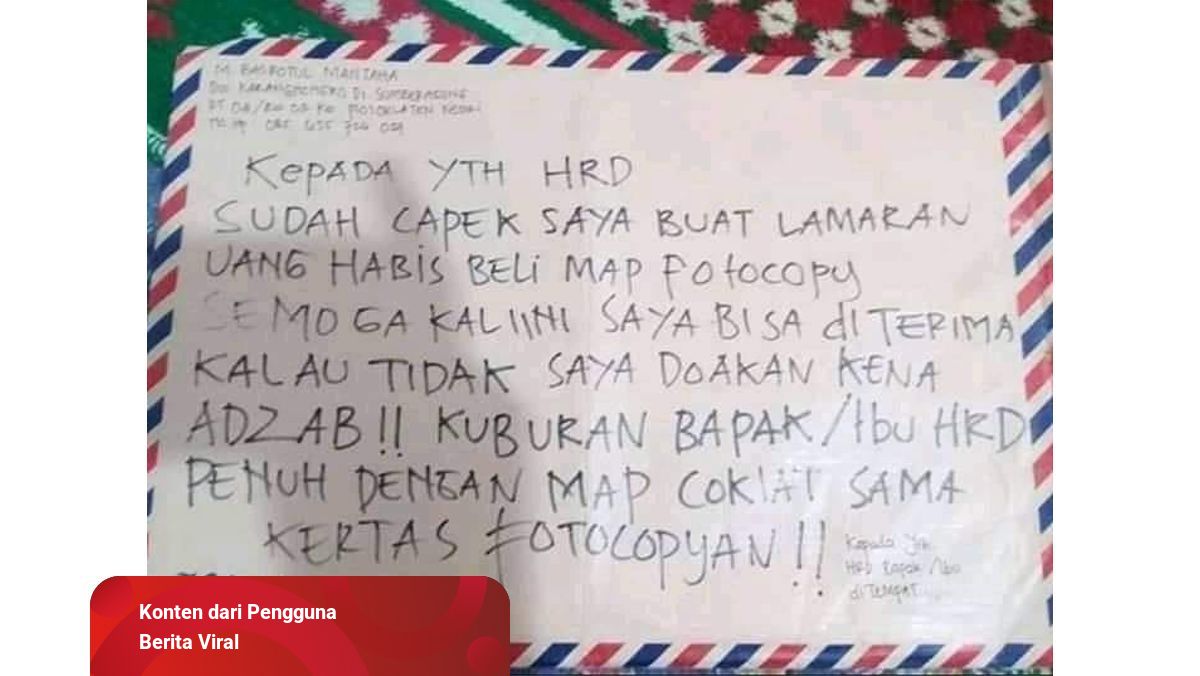 KEPADA YTH HRD
SUDAH CAPEK SAYA BUAT LAMARAN
UANG HABIS BELi MAP FOtOCOPY
SEMOGA KALIINI SAYA BISA di TERIMA
KALAU TIDAK SAYA DOAKAN KENA
ADZAB!! KUBURAN BAPAK/Ibu HRD
PENUH DENGAN MAP COKLAT SAMA
KERTAS FOTOCOPYAN!!
Kepada Yth
HRD Bapak/Ibu
di TEMPAT
Konten dari Pengguna
Berita Viral